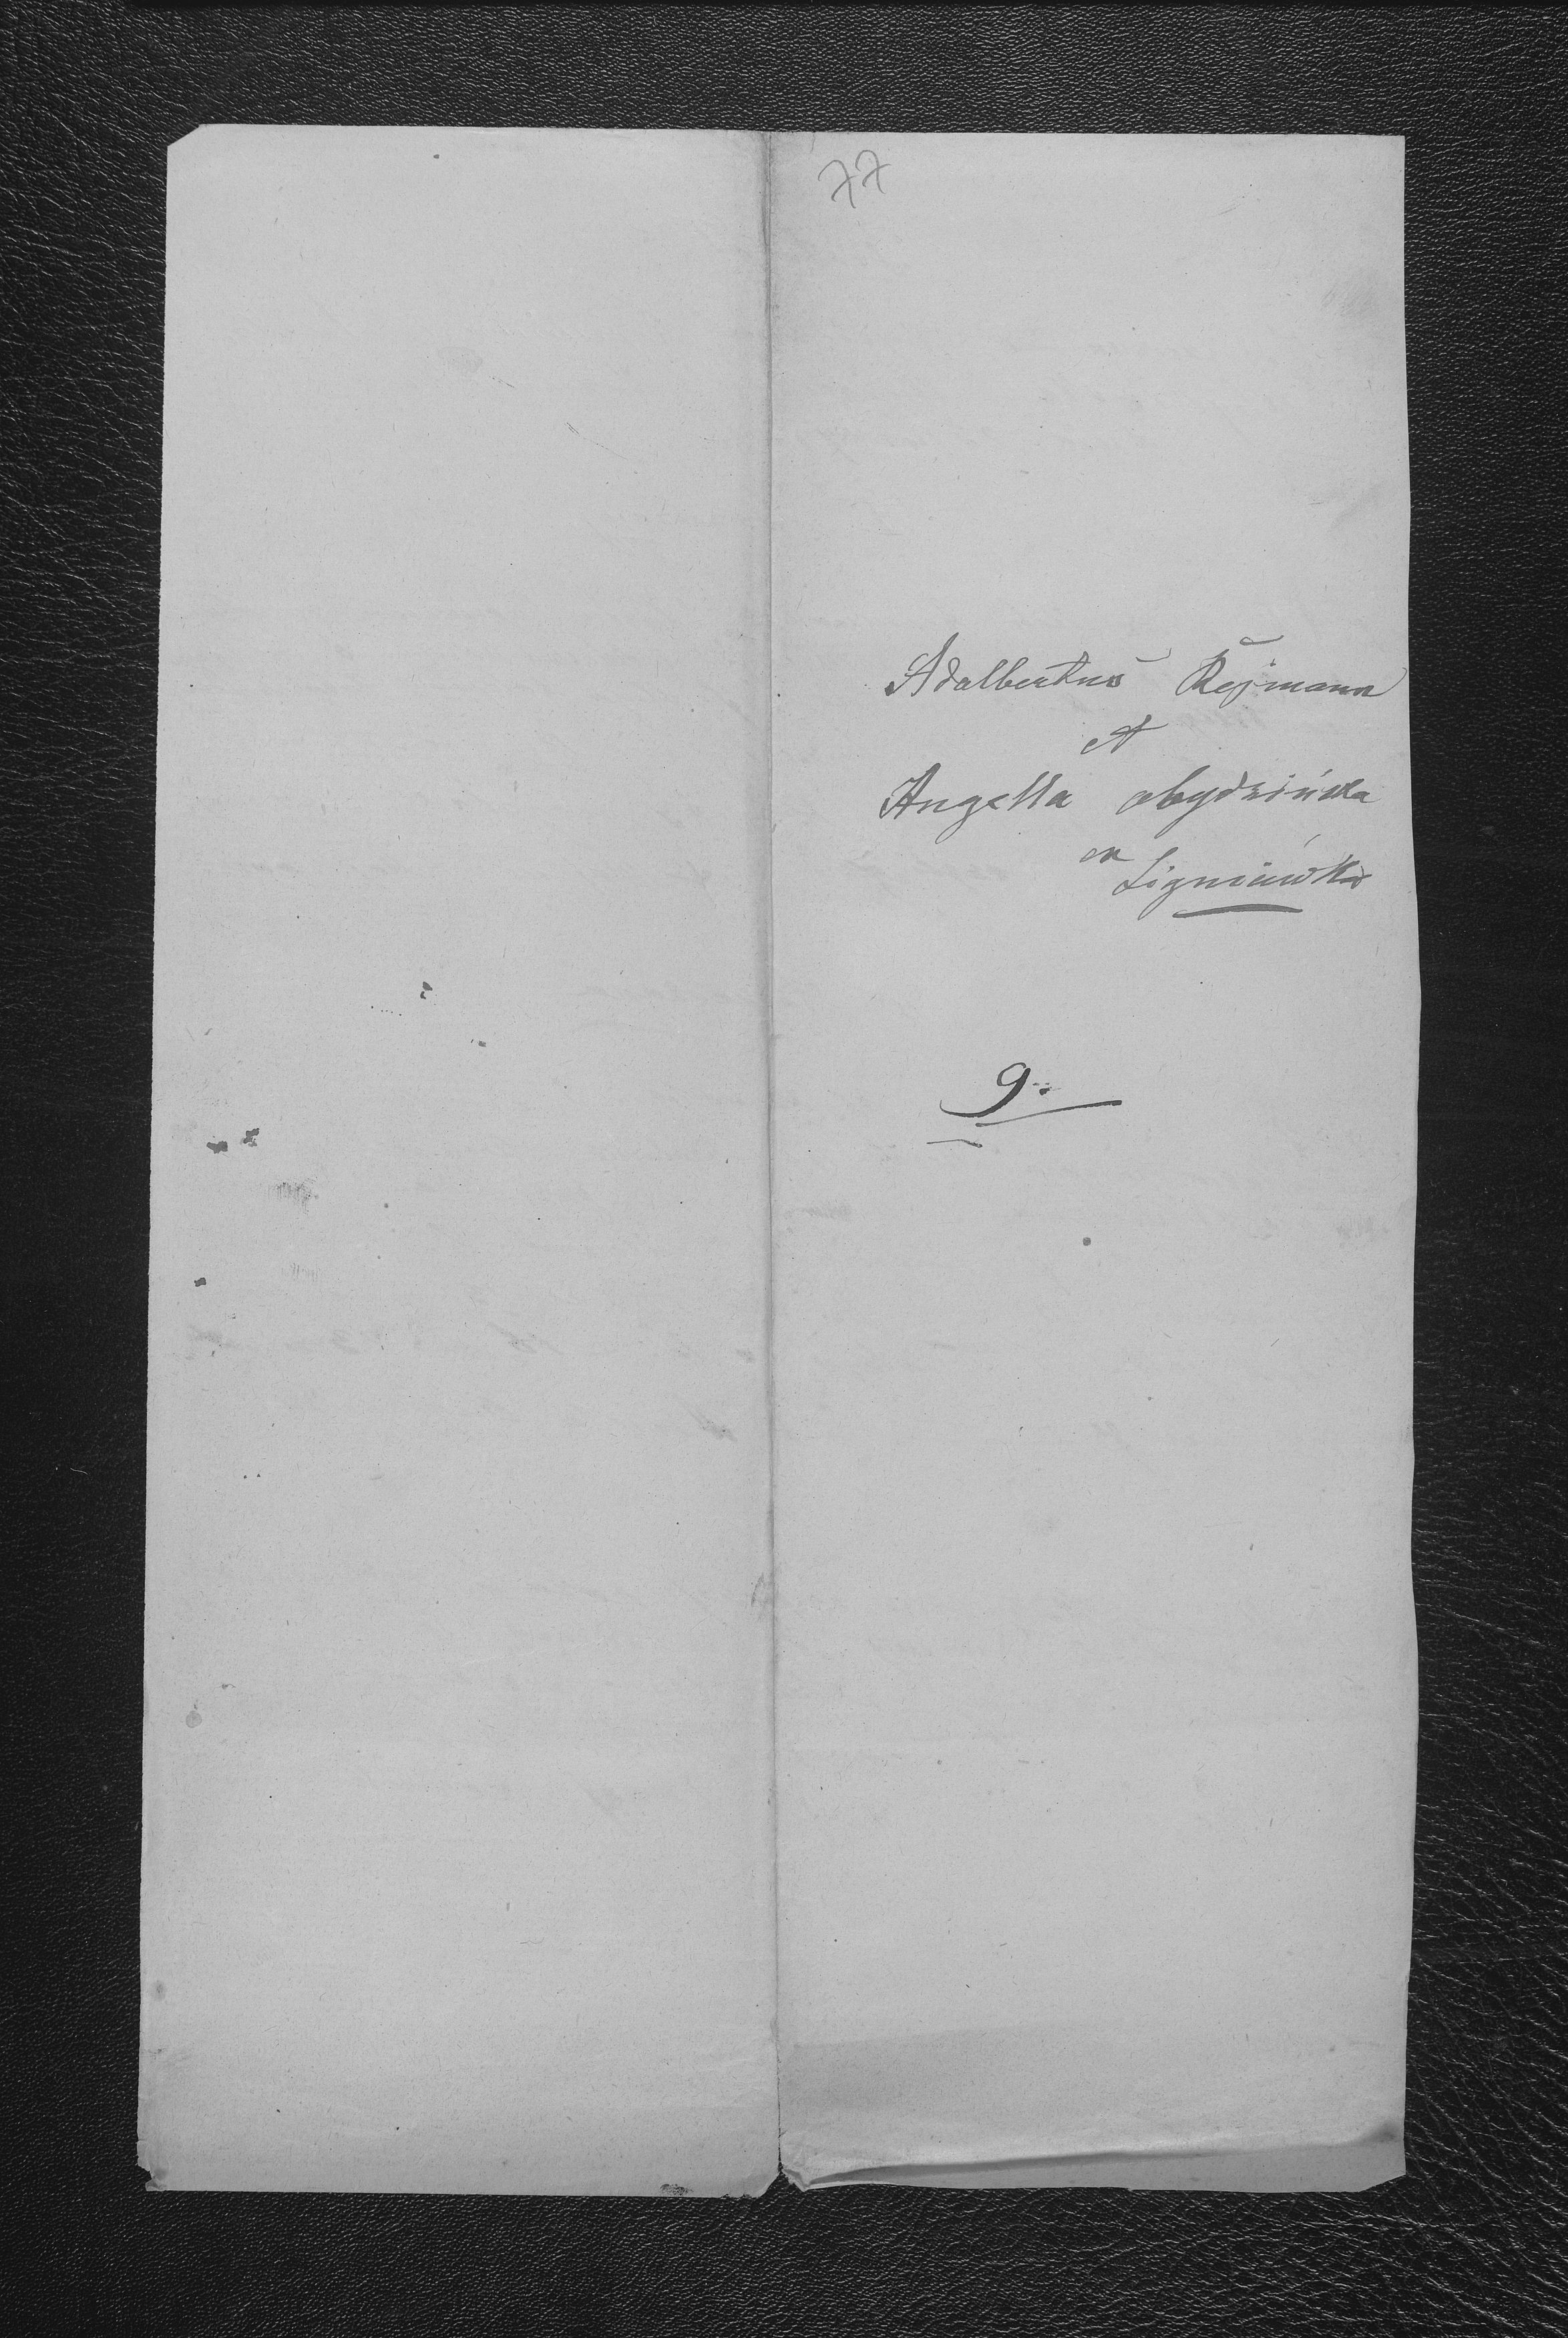 77
Adalbertus Rejmann
et
Angella Obydzińska
ex
Ligmiówka
9.